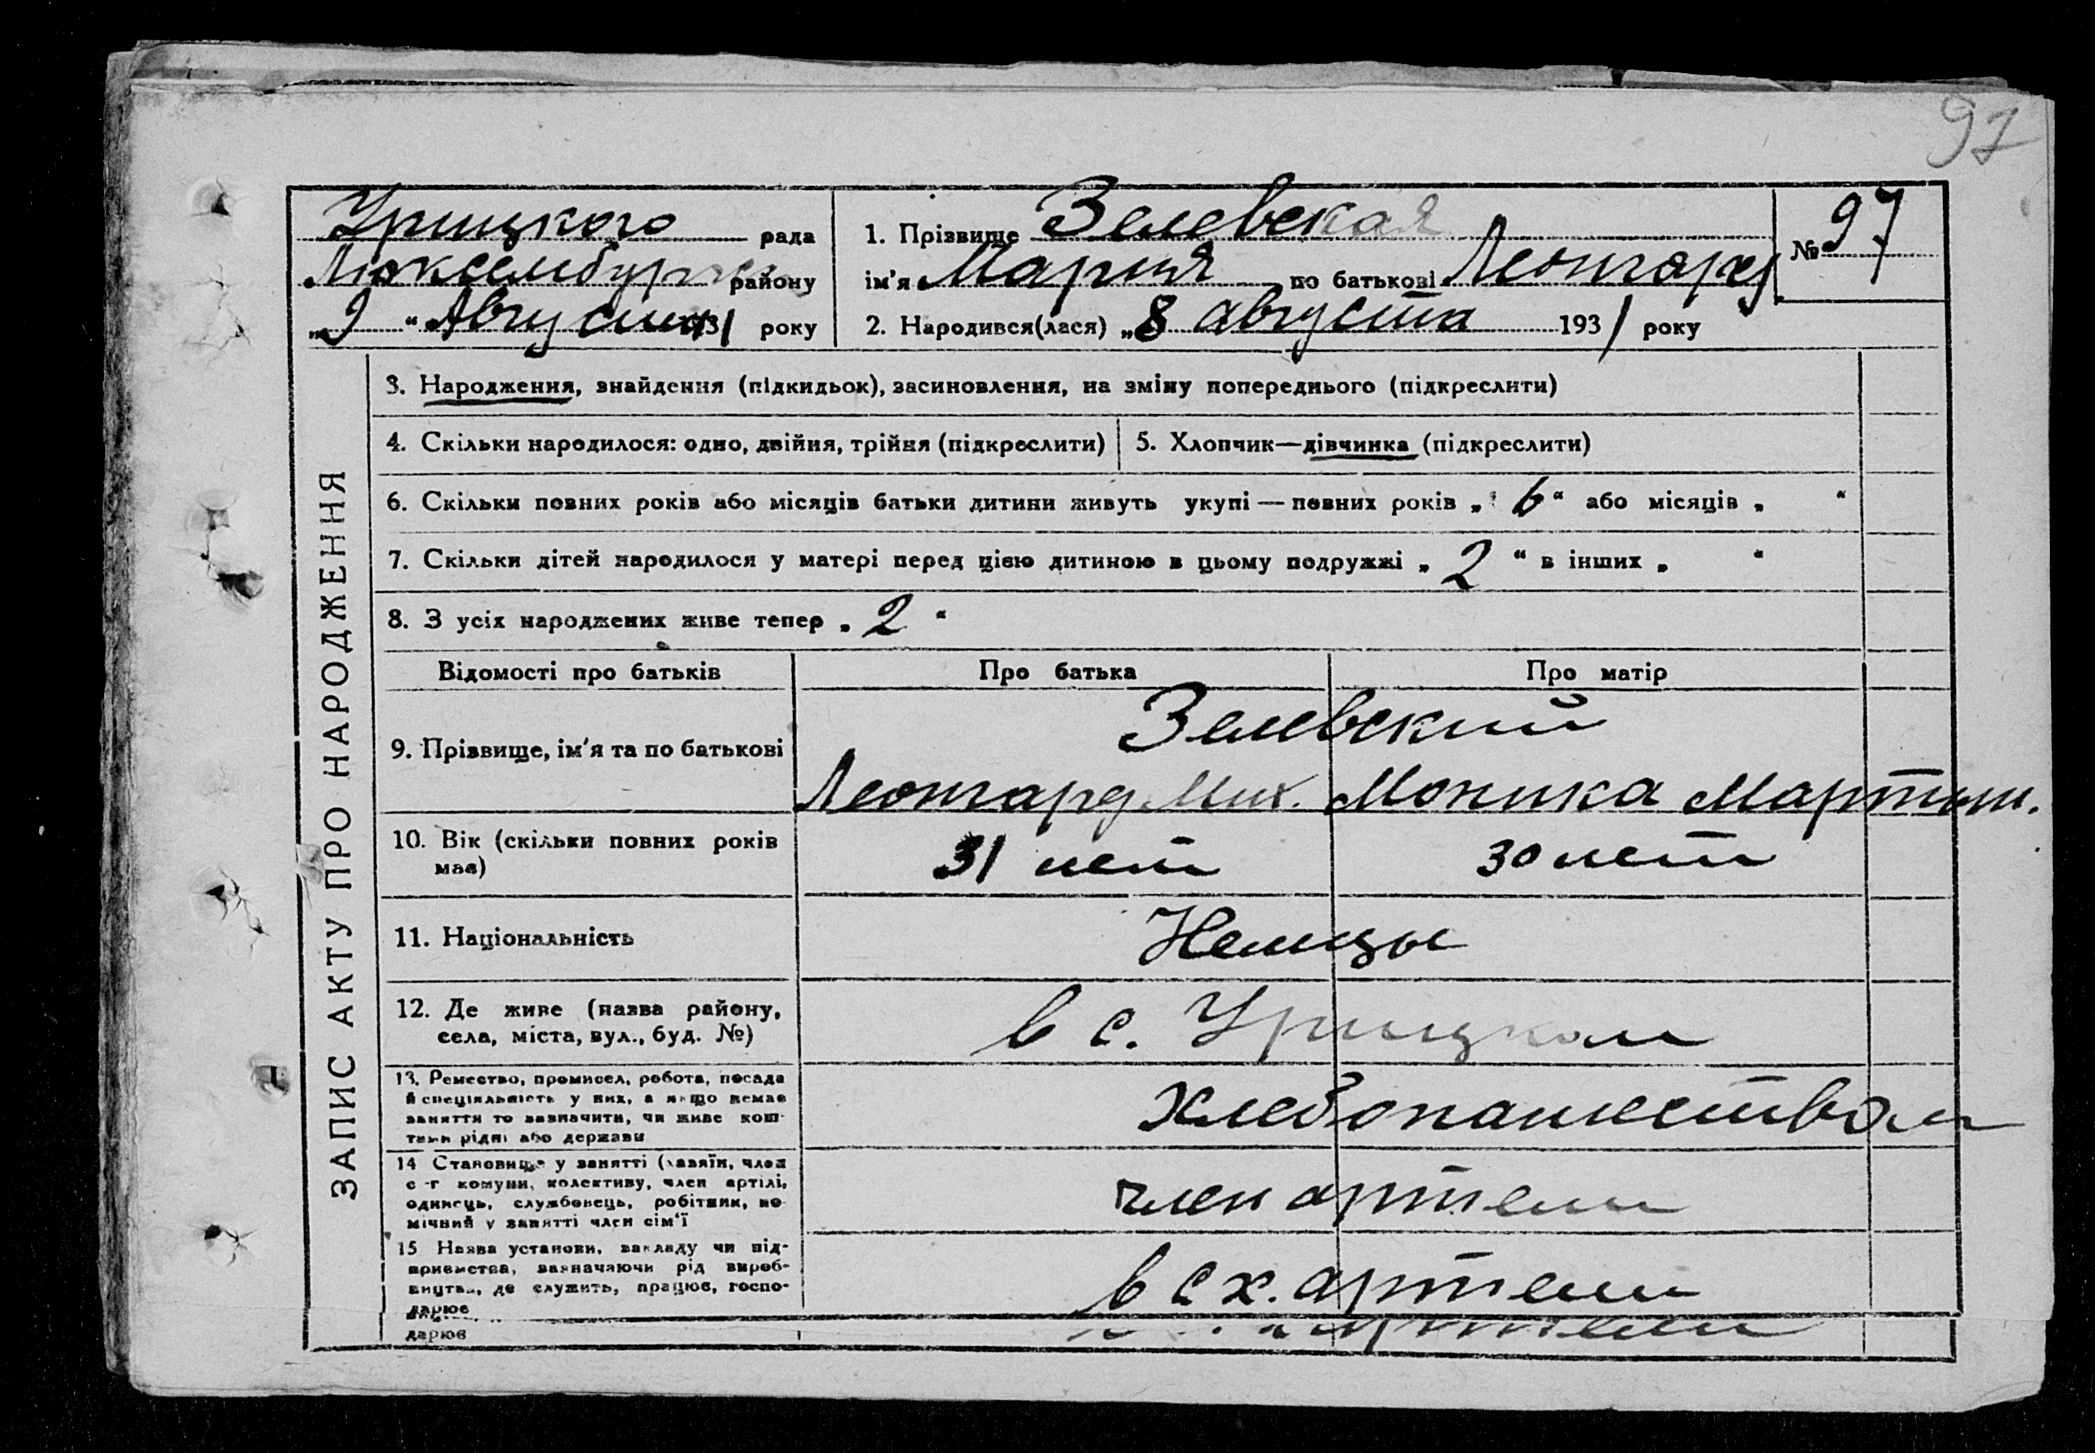 97
Урицкого рада
Люксембургск району
„9“ Августа 1931 року
1. Прізвище Зелевская
ім'я Мария по батькові Леонгард
2. Народився(лася) „8 августа 1931 року
№ 97
ЗАПИС АКТУ ПРО НАРОДЖЕННЯ
3. Народження, знайдення (підкидьок), засиновлення, на зміну попереднього (підкреслити)
4. Скільки народилося: одно, двійня, трійня (підкреслити)
5. Хлопчик—дівчинка (підкреслити)
6. Скільки повних років або місяців батьки дитини живуть укупі — повних років „6“ або місяців „ “
7. Скільки дітей народилося у матері перед цією дитиною в цьому подружжі „2“ в інших „ “
8. З усіх народжених живе тепер „2“
Відомості про батьків Про батька Про матір
9. Прізвище, ім'я та по батькові
Зелевский
Леонгард Мих. Моника Мартын.
10. Вік (скільки повних років
має)
31 лет 30 лет
11. Національність Немцы
12. Де живе (назва району,
села, міста, вул., буд. №)
в с. Урицком
13. Ремество, промисел, робота, посада
й спеціяльність у них, а якщо немає
заняття то зазначити, чи живе кош-
тами рідні або держави
Хлебопашеством
14 Становище у занятті (хазяїн, член
с.-г комуни, колективу, член артілі,
одинець, службовець, робітник, по-
мічний у занятті член сім'ї
член артели
15 Назва установи, закладу чи під-
приємства, зазначаючи рід вироб-
ництва, де служить, працює, госпо-
дарює
в с х. артели
дарює
артели